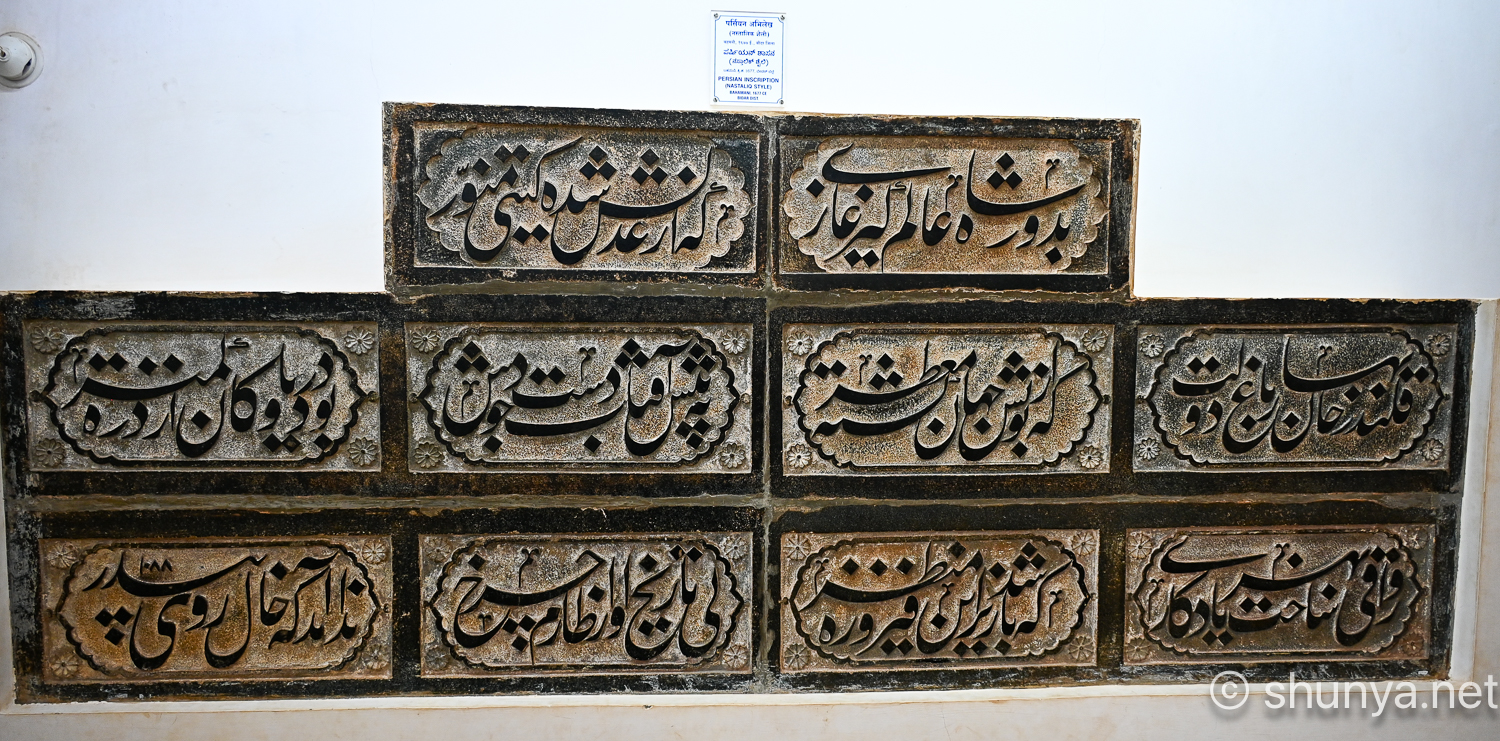 पर्सियन अभिलेख
(नस्तालिक शैली)
ಪರ್ಷಿಯನ್ ಶಾಸನ
(ನಸ್ತಾಲಿಕ್ ಶೈಲಿ)
PERSIAN INSCRIPTION
(NASTALIQ STYLE)
BAHAMANI, 1677 CE
BIDAR DIST.
بدور شاه عالم گیر غازی
که از عدلش شده گیتی منور
قلندر خان بهار باغ دولت
که از بویش جهان گشته معطر
به پیش آفتاب دست جودش
بود دریا و کان از ذره کمتر
رواقی ساخت بهر یادگاری
که باشد زیر این فیروزه منظر
پی تاریخ او از طارم چرخ
ندا آمد که خال روی بیدر ۱۰۸۸
© shunya.net